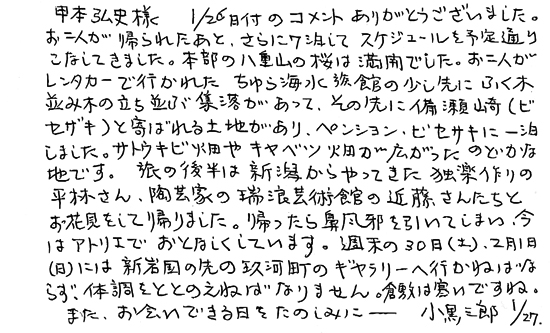 甲本弘史様　1/26日付のコメントありがとうございました。
お二人が帰られたあと、さらに7泊してスケジュールを予定通り
こなしてきました。本部の八重山の桜は満開でした。お二人が
レンタカーで行かれた ちゅら海水族館の少し先に ふく木
並み木の立ち並ぶ集落があって、その先に備瀬崎(ビ
セザキ)と呼ばれる土地があり、ペンション、ビセザキに一泊
しました。サトウキビ畑や キャベツ畑が広がった のどかな
地です。 旅の後半は新潟からやってきた独楽作りの
平林さん、陶芸家の瑞浪芸術館の近藤さんたちと
お花見をして帰りました。帰ったら鼻風邪を引いてしまい、今
はアトリエでおとなしくしています。週末の30日(土)、2月1日
(日)には新岩国の先の玖河町のギャラリーへ行かねばな
らず、体調をととのえねばなりません。倉敷は寒いですね。
また、お会いできる日をたのしみに── 小黒三郎 1/27.